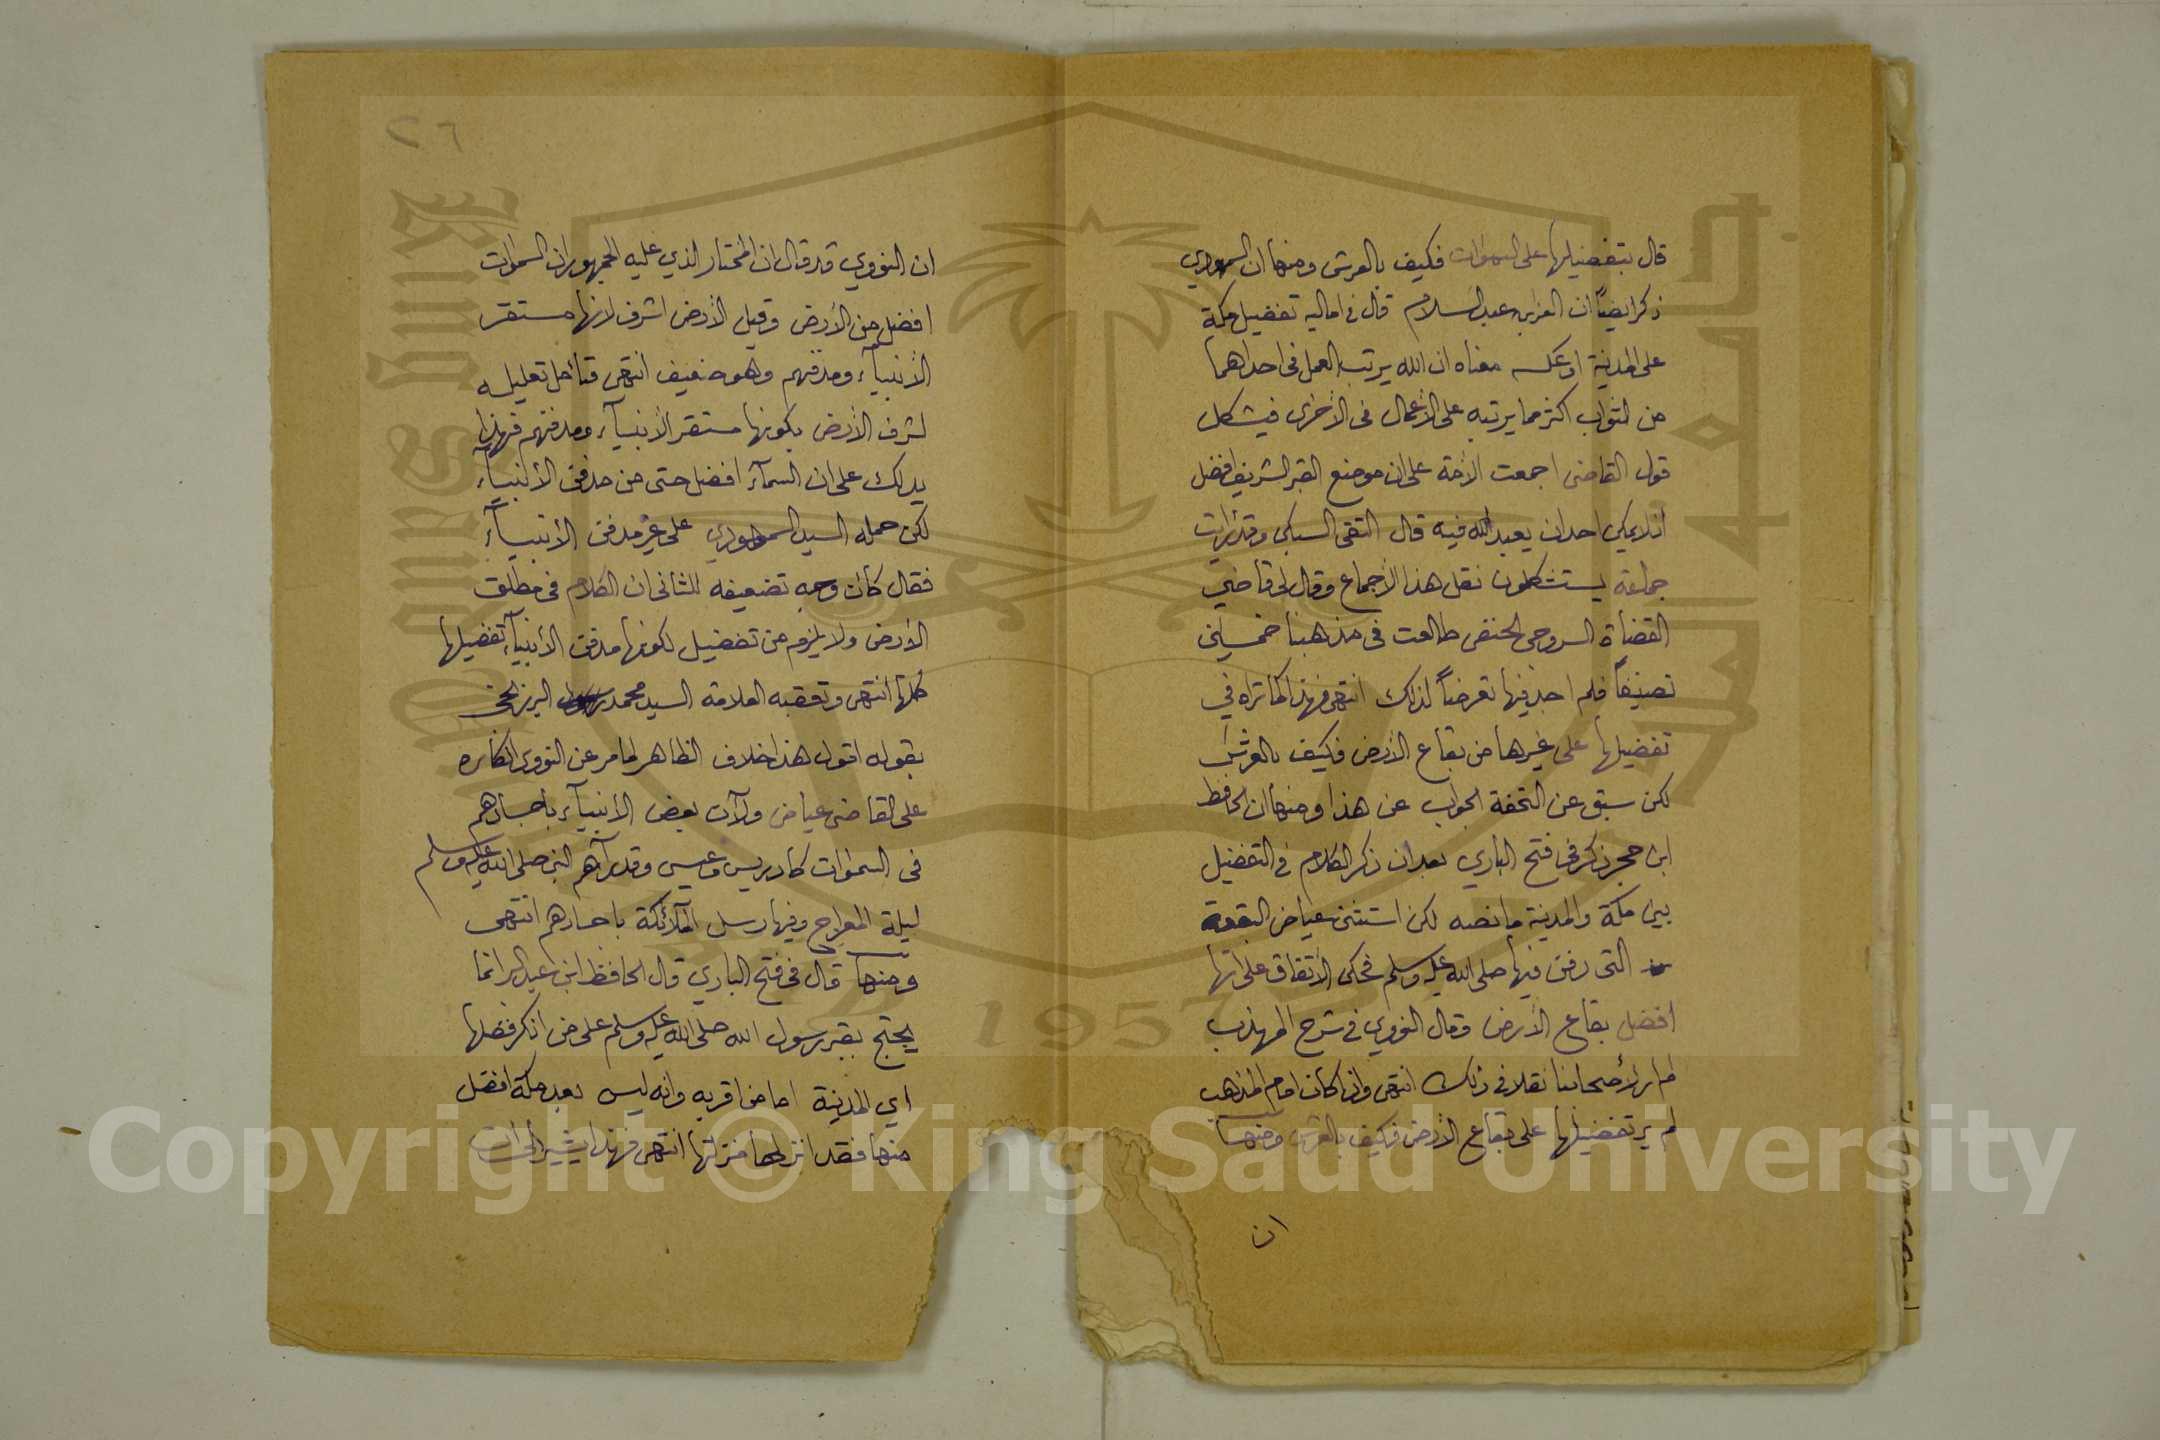 قال بتفضيلها على السموات فكيف بالعرش ومنها ان السمهودي
ذكر ايضاً ان العز بن عبد السلام قال في اماليه تفضيل مكة
على المدينة او عكسه معناه ان الله يرتب العمل في احداهما
من الثواب اكثر مما يرتبه على الأعمال في الأخرى فيشكل
قول القاضي اجمعت الأمة على ان موضع القبر الشريف افضل
اذ لا يمكن احد ان يعبد الله فيه قال التقي السبكي وقد رأيت
جماعة يستشكلون نقل هذا الأجماع وقال لي قاضي
القضاة السروجي الحنفي طالعت في مذهبنا خمسين
تصنيفاً فلم اجد فيها تعرضاً لذلك انتهى فهذا كما تراه في
تفضيلها على غيرها من بقاع الأرض فكيف بالعرش
لكن سبق عن التحفة الجواب عن هذا ومنها ان الحافظ
ابن حجر ذكر في فتح الباري بعد ان ذكر الكلام في التفضيل
بين مكة والمدينة ما نصه لكن استثنى عياض البقعة
التي دفن فيها صلى الله عليه وسلم فحكى الأتفاق على انها
افضل بقاع الأرض وقال النووي في شرح المهذب
لم ار لأصحابنا نقلا في ذلك انتهى واذا كان امام المذهب
لم ير تفضيلها على بقاع الأرض فكيف بالعرش ومنها
ان
٢٦
ان النووي قد قال ان المختار الذي عليه الجمهور ان السموات
افضل من الأرض وقيل الأرض اشرف لانها مستقر
الأنبيآء ومدفنهم وهو ضعيف انتهى فتأمل تعليله
لشرف الأرض بكونها مستقر الأنبيآء ومدفنهم فهذا
يدلك على ان السمآء افضل حتى من مدفن الأنبيآء
لكن حمله السيد السمهودي على غير مدفن الأنبيآء
فقال كان وجه تضعيفه للثاني ان الكلام في مطلق
الأرض ولا يلزم من تفضيل لكونها مدفن الأنبيآء تفضيلها
كلها انتهى وتعقبه العلامة السيد محمد رسول البرزنجي
بقوله اقول هذا خلاف الظاهر لما مر عن النووي انكاره
على القاضي عياض ولآن بعض الأنبيآء باجسادهم
في السموات كادريس وعيسى وقد رآهم النبي صلى الله عليه وسلم
ليلة المعراج وفيها رسل الملآئكة باجسادهم انتهى
ومنها قال في فتح الباري قال الحافظ ابن عبد البر انما
يحتج بقبر رسول الله صلى الله عليه وسلم على من انكر فضلها
اي المدينة اما من اقر به وانه ليس بعد مكة افضل
منها فقد انزلها منزلتها انتهى فهذا يشير الى ان
Copyright © King Saud University
King Saud University
1957